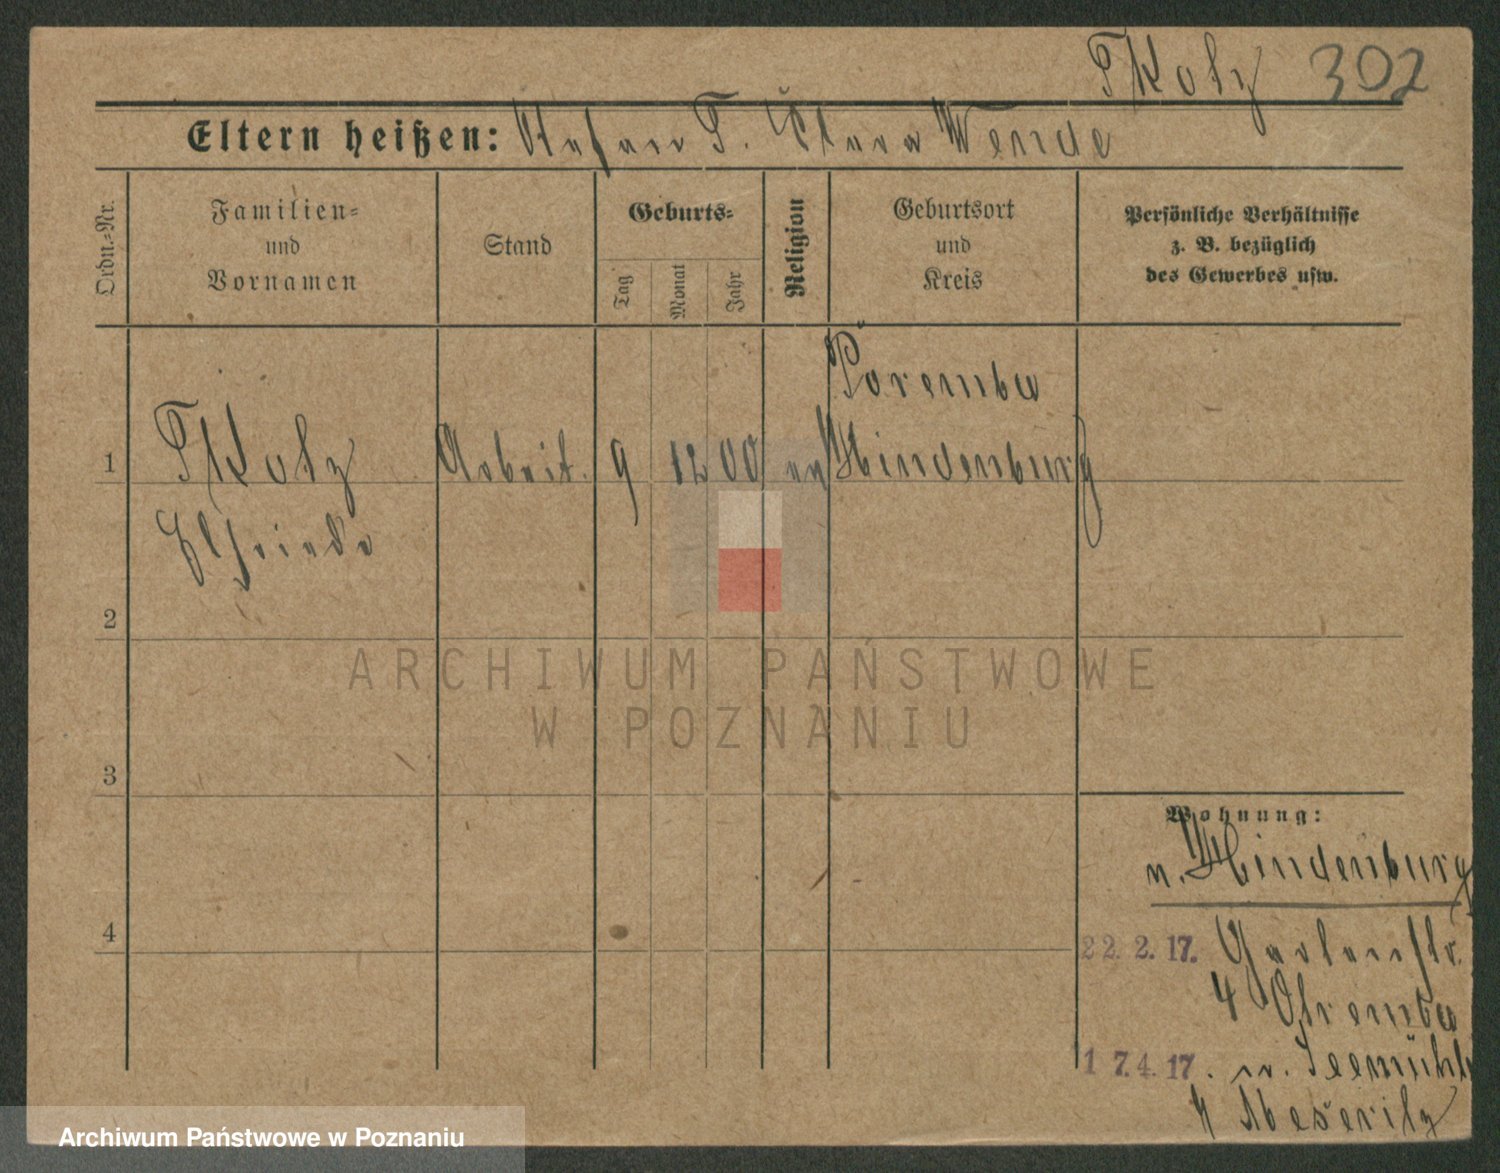 Skolz 302
Eltern heißen: Stefan S. Clara Wende
Ordn.-Nr.
Familien-
und
Vornamen
Stand
Geburts-
Tag
Monat
Jahr
Religion
Geburtsort
und
Kreis
Persönliche Verhältnisse
z. B. bezüglich
des Gewerbes usw.
Poremba
1 Skolz Arbeit. 9 12 00 Hindenburg
Elfriede
2
3
4
ARCHIWUM PAŃSTWOWE
W POZNANIU
Wohnung:
n. Hindenburg
22. 2. 17. Gartenstr.
4
17. 4. 17. n.
Meseritz
Archiwum Państwowe w Poznaniu